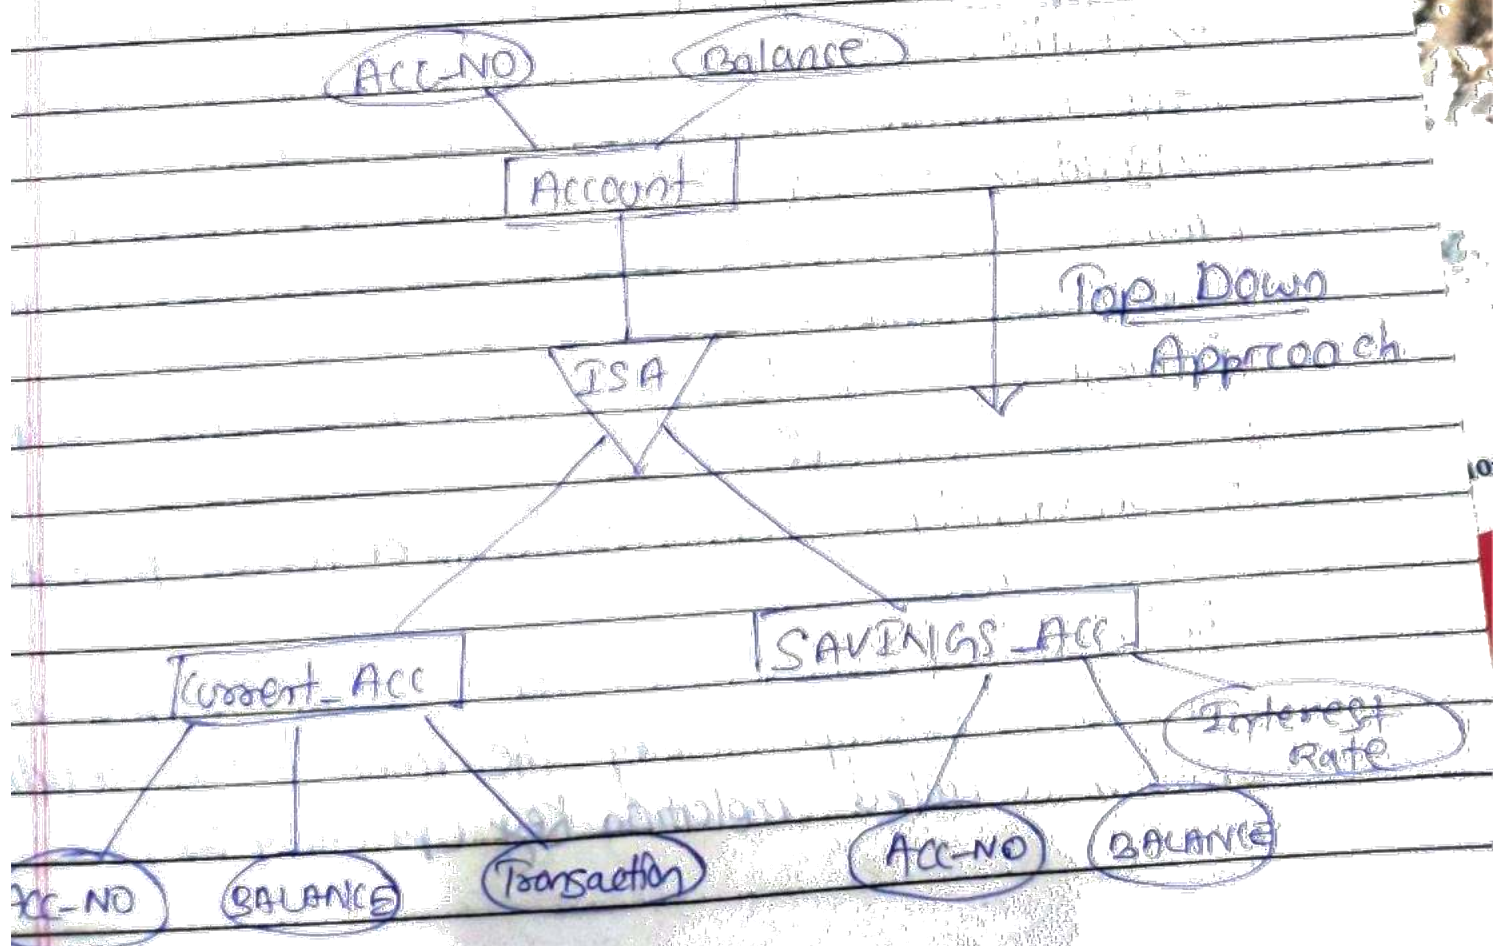 ACC-NO
Balance
Account
Top Down
Approach
ISA
Current_Acc
SAVINIGS_ACC
Interest
Rate
ACC-NO
BALANCE
Transaction
ACC-NO
BALANCE